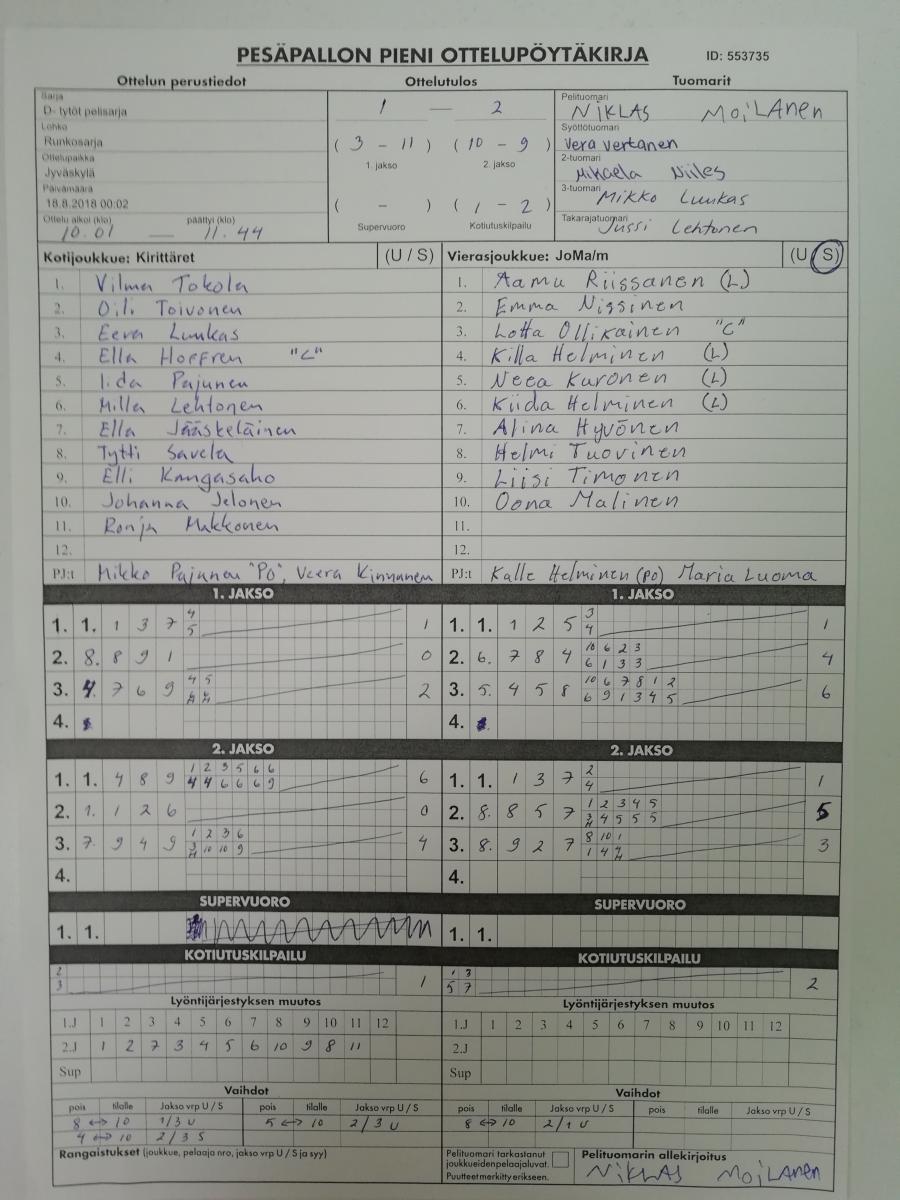 PESÄPALLON PIENI OTTELUPÖYTÄKIRJA ID: 553735
Ottelun perustiedot Ottelutulos Tuomarit
Sarja
D- tytöt pelisarja
Lohko
Runkosarja
Ottelupaikka
Jyväskylä
Päivämäärä
18.8.2018 00:02
Ottelu alkoi (klo) päättyi (klo)
10.01 — 11.44
1 — 2
( 3 - 11 ) ( 10 - 9 )
1. jakso 2. jakso
( - ) ( 1 - 2 )
Supervuoro Kotiutuskilpailu
Pelituomari
NIKLAS MOILANEN
Syöttötuomari
Vera Vertanen
2-tuomari
Mikaela Niiles
3-tuomari
Mikko Luukas
Takarajatuomari
Jussi Lehtonen
Kotijoukkue: Kirittäret (U / S)
1. Vilma Tokola
2. Oili Toivonen
3. Eeva Luukas
4. Ella Hoffren "C"
5. Iida Pajunen
6. Milla Lehtonen
7. Ella Jääskeläinen
8. Tytti Savela
9. Elli Kangasaho
10. Johanna Jelonen
11. Ronja Makkonen
12.
PJ:t Mikko Pajunen "PO", Veera Kinnunen
Vierasjoukkue: JoMa/m (U / S)
1. Aamu Riissanen (L)
2. Emma Nissinen
3. Lotta Ollikainen "C"
4. Killa Helminen (L)
5. Neea Kuronen (L)
6. Kiida Helminen (L)
7. Alina Hyvönen
8. Helmi Tuovinen
9. Liisi Timonen
10. Oona Malinen
11.
12.
PJ:t Kalle Helminen (PO) Maria Luoma
1. JAKSO
4
1. 1. 1 3 7 5 1
2. 8. 8 9 1 0
4 5
3. 4. 7 6 9 2
4.
1. JAKSO
3
1. 1. 1 2 5 4 1
10 6 2 3
2. 6. 7 8 4 6 1 3 3 4
10 6 7 8 1 2
3. 5. 4 5 8 6 9 1 3 4 5 6
4.
2. JAKSO
1 2 3 5 6 6
1. 1. 4 8 9 4 4 6 6 6 9 6
2. 1. 1 2 6 0
1 2 3 6
3. 7. 9 4 9 3/H 10 10 9 4
4.
2. JAKSO
2
1. 1. 1 3 7 4 1
1 2 3 4 5
2. 8. 8 5 7 3/H 4 5 5 5 5
8 10 1
3. 8. 9 2 7 1 4 4/H 3
4.
SUPERVUORO
1. 1.
SUPERVUORO
1. 1.
KOTIUTUSKILPAILU
2
3 1
KOTIUTUSKILPAILU
1 3
5 7 2
Lyöntijärjestyksen muutos
1.J 1 2 3 4 5 6 7 8 9 10 11 12
2.J 1 2 7 3 4 5 6 10 9 8 11
Sup
Lyöntijärjestyksen muutos
1.J 1 2 3 4 5 6 7 8 9 10 11 12
2.J
Sup
Vaihdot
pois tilalle Jakso vrp U / S pois tilalle Jakso vrp U / S
8 <-> 10 1/3 U 5 <-> 10 2/3 U
4 <-> 10 2/3 S
Vaihdot
pois tilalle Jakso vrp U / S pois tilalle Jakso vrp U / S
8 <-> 10 2/1 U
Rangaistukset (joukkue, pelaaja nro, jakso vrp U / S ja syy)
Pelituomari tarkastanut
joukkueidenpelaajaluvat.
Puutteet merkitty erikseen.
Pelituomarin allekirjoitus
NIKLAS MOILANEN